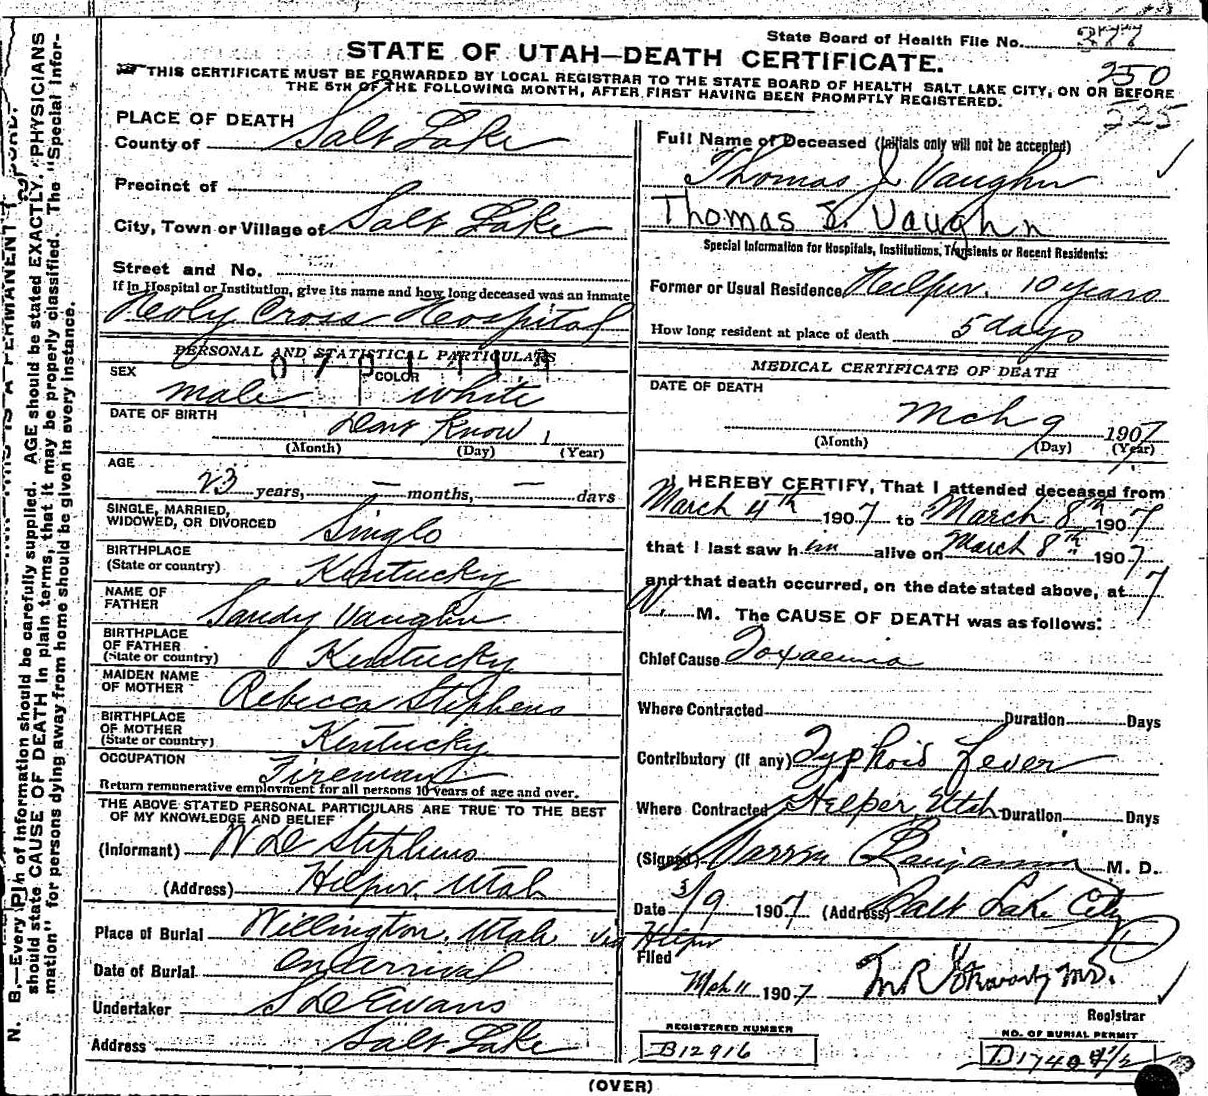 State Board of Health File No. 377
STATE OF UTAH—DEATH CERTIFICATE.
250
THIS CERTIFICATE MUST BE FORWARDED BY LOCAL REGISTRAR TO THE STATE BOARD OF HEALTH SALT LAKE CITY, ON OR BEFORE
THE 5TH OF THE FOLLOWING MONTH, AFTER FIRST HAVING BEEN PROMPTLY REGISTERED.
325
PLACE OF DEATH
County of Salt Lake
Precinct of
City, Town or Village of Salt Lake
Street and No.
If in Hospital or Institution, give its name and how long deceased was an inmate
Holy Cross Hospital
PERSONAL AND STATISTICAL PARTICULARS
SEX male COLOR white
DATE OF BIRTH Dont Know
(Month) (Day) (Year)
AGE
23 years, — months, — days
SINGLE, MARRIED,
WIDOWED, OR DIVORCED Single
BIRTHPLACE
(State or country) Kentucky
NAME OF
FATHER Sandy Vaughn
BIRTHPLACE
OF FATHER
(State or country) Kentucky
MAIDEN NAME
OF MOTHER Rebecca Stephens
BIRTHPLACE
OF MOTHER
(State or country) Kentucky
OCCUPATION Fireman
Return remunerative employment for all persons 10 years of age and over.
THE ABOVE STATED PERSONAL PARTICULARS ARE TRUE TO THE BEST
OF MY KNOWLEDGE AND BELIEF
(Informant) W De Stephens
(Address) Helper Utah
Place of Burial Willington, Utah via Helper
Date of Burial on arrival
Undertaker S D Evans
Address Salt Lake
Full Name of Deceased (Initials only will not be accepted)
Thomas J Vaughn
Thomas J. Vaughn
Special Information for Hospitals, Institutions, Transients or Recent Residents:
Former or Usual Residence Helper. 10 years
How long resident at place of death 5 days
MEDICAL CERTIFICATE OF DEATH
DATE OF DEATH
Mch 9 1907
(Month) (Day) (Year)
I HEREBY CERTIFY, That I attended deceased from
March 4th 1907 to March 8th 1907
that I last saw him alive on March 8th 1907
and that death occurred, on the date stated above, at 7
M. The CAUSE OF DEATH was as follows:
Chief Cause Toxaemia
Where Contracted Duration Days
Contributory (If any) Typhoid Fever
Where Contracted Helper, Utah Duration Days
(Signed) Benjamin M. D.
Date 3/9 1907 (Address) Salt Lake City
Filed
Mch 11 1907 M.D.
Registrar
REGISTERED NUMBER
B12916
NO. OF BURIAL PERMIT
(OVER)
N. B.—Every of information should be carefully supplied. AGE should be stated EXACTLY. PHYSICIANS
should state CAUSE OF DEATH in plain terms, that it may be properly classified. The "Special Infor-
mation" for persons dying away from home should be given in every instance.